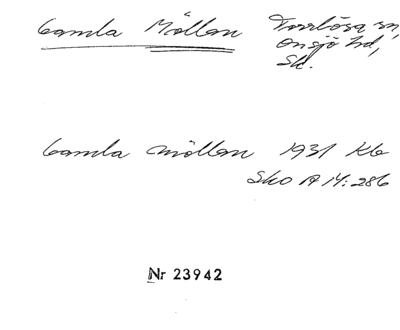 Gamla Möllan Torrlösa sn,
Onsjö hd,
Sk.
Gamla möllan 1931 Kb
Sko A 14:286
Nr 23942